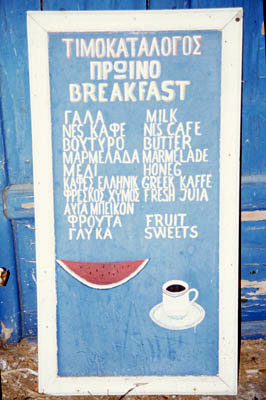 ΤΙΜΟΚΑΤΑΛΟΓΟΣ
ΠΡΩΙΝΟ
BREAKFAST
ΓΑΛΑ MILK
ΝΕΣ ΚΑΦΕ NIS CAFE
ΒΟΥΤΥΡΟ BUTTER
ΜΑΡΜΕΛΑΔΑ MARMELADE
ΜΕΛΙ HONEG
ΚΑΦΕΣ ΕΛΛΗΝΙΚ GREEK KAFFE
ΦΡΕΣΚΟΣ ΧΥΜΟΣ FRESH JUIA
ΑΥΓΑ ΜΠΕΙΚΟΝ
ΦΡΟΥΤΑ FRUIT
ΓΛΥΚΑ SWEETS